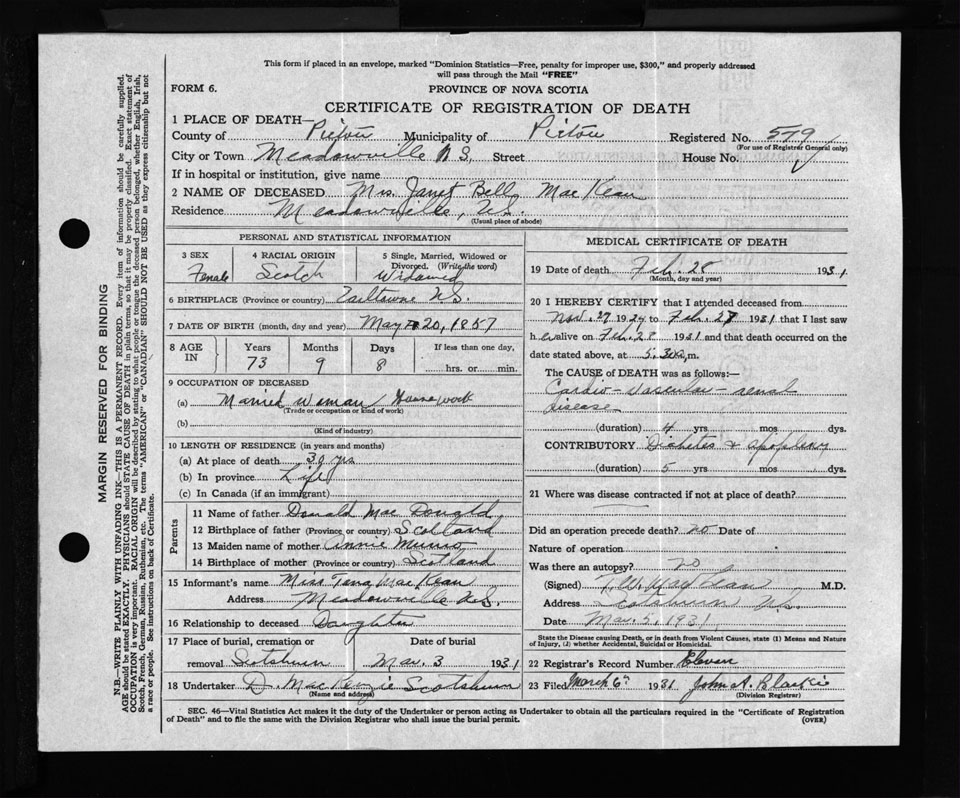 This form if placed in an envelope, marked "Dominion Statistics—Free, penalty for improper use, $300," and properly addressed
will pass through the Mail "FREE"
FORM 6.
PROVINCE OF NOVA SCOTIA
CERTIFICATE OF REGISTRATION OF DEATH
1 PLACE OF DEATH—
County of Pictou Municipality of Pictou Registered No. 579
(For use of Registrar General only)
City or Town Meadowville N S, Street House No.
If in hospital or institution, give name
2 NAME OF DECEASED Mrs. Janet Bell MacKean
Residence Meadowville, N.S.
(Usual place of abode)
PERSONAL AND STATISTICAL INFORMATION
3 SEX Female
4 RACIAL ORIGIN Scotch
5 Single, Married, Widowed or Divorced. (Write the word) Widowed
6 BIRTHPLACE (Province or country) Earltown N.S.
7 DATE OF BIRTH (month, day and year) May 20, 1857
8 AGE IN Years 73 Months 9 Days 8 If less than one day, hrs. or min.
9 OCCUPATION OF DECEASED
(a) Married Woman Housework
(Trade or occupation or kind of work)
(b)
(Kind of industry)
10 LENGTH OF RESIDENCE (in years and months)
(a) At place of death 30 yrs
(b) In province Life
(c) In Canada (if an immigrant)
Parents
11 Name of father Donald MacDonald
12 Birthplace of father (Province or country) Scotland
13 Maiden name of mother Annie Munro
14 Birthplace of mother (Province or country) Scotland
15 Informant's name Miss Tena MacKean
Address Meadowville N.S.
16 Relationship to deceased Daughter
17 Place of burial, cremation or removal Scotsburn
Date of burial Mar. 3 1931
18 Undertaker D. MacKenzie Scotsburn
(Name and address)
MEDICAL CERTIFICATE OF DEATH
19 Date of death Feb. 28 1931
(Month, day and year)
20 I HEREBY CERTIFY that I attended deceased from
Nov. 27 1929 to Feb. 27 1931 that I last saw
h er alive on Feb. 27 1931 and that death occurred on the
date stated above, at 5.30 a.m.
The CAUSE of DEATH was as follows:—
Cardio-vascular-renal
disease
(duration) 4 yrs mos dys.
CONTRIBUTORY Diabetes & apoplexy
(duration) 5 yrs mos dys.
21 Where was disease contracted if not at place of death?
Did an operation precede death? no Date of
Nature of operation
Was there an autopsy? no
(Signed) T. W. MacLean M.D.
Address Scotsburn N.S.
Date Mar. 5, 1931
State the Disease causing Death, or in death from Violent Causes, state (1) Means and Nature
of Injury, (2) whether Accidental, Suicidal or Homicidal.
22 Registrar's Record Number Eleven
23 Filed March 6th 1931 John A. Blaikie
(Division Registrar)
SEC. 46—Vital Statistics Act makes it the duty of the Undertaker or person acting as Undertaker to obtain all the particulars required in the "Certificate of Registration
of Death" and to file the same with the Division Registrar who shall issue the burial permit. (OVER)
MARGIN RESERVED FOR BINDING
N.B.—WRITE PLAINLY WITH UNFADING INK—THIS IS A PERMANENT RECORD. Every item of information should be carefully supplied.
AGE should be stated EXACTLY. PHYSICIANS should STATE CAUSE OF DEATH in plain terms, so that it may be properly classified. Exact statement of
OCCUPATION is very important. RACIAL ORIGIN will be described by stating to what people or tongue the deceased person belonged, whether English, Irish,
Scotch, French, German, Russian, Ruthenian, etc. The terms "AMERICAN" or "CANADIAN" SHOULD NOT BE USED as they express citizenship but not
a race or people. See instructions on back of Certificate.